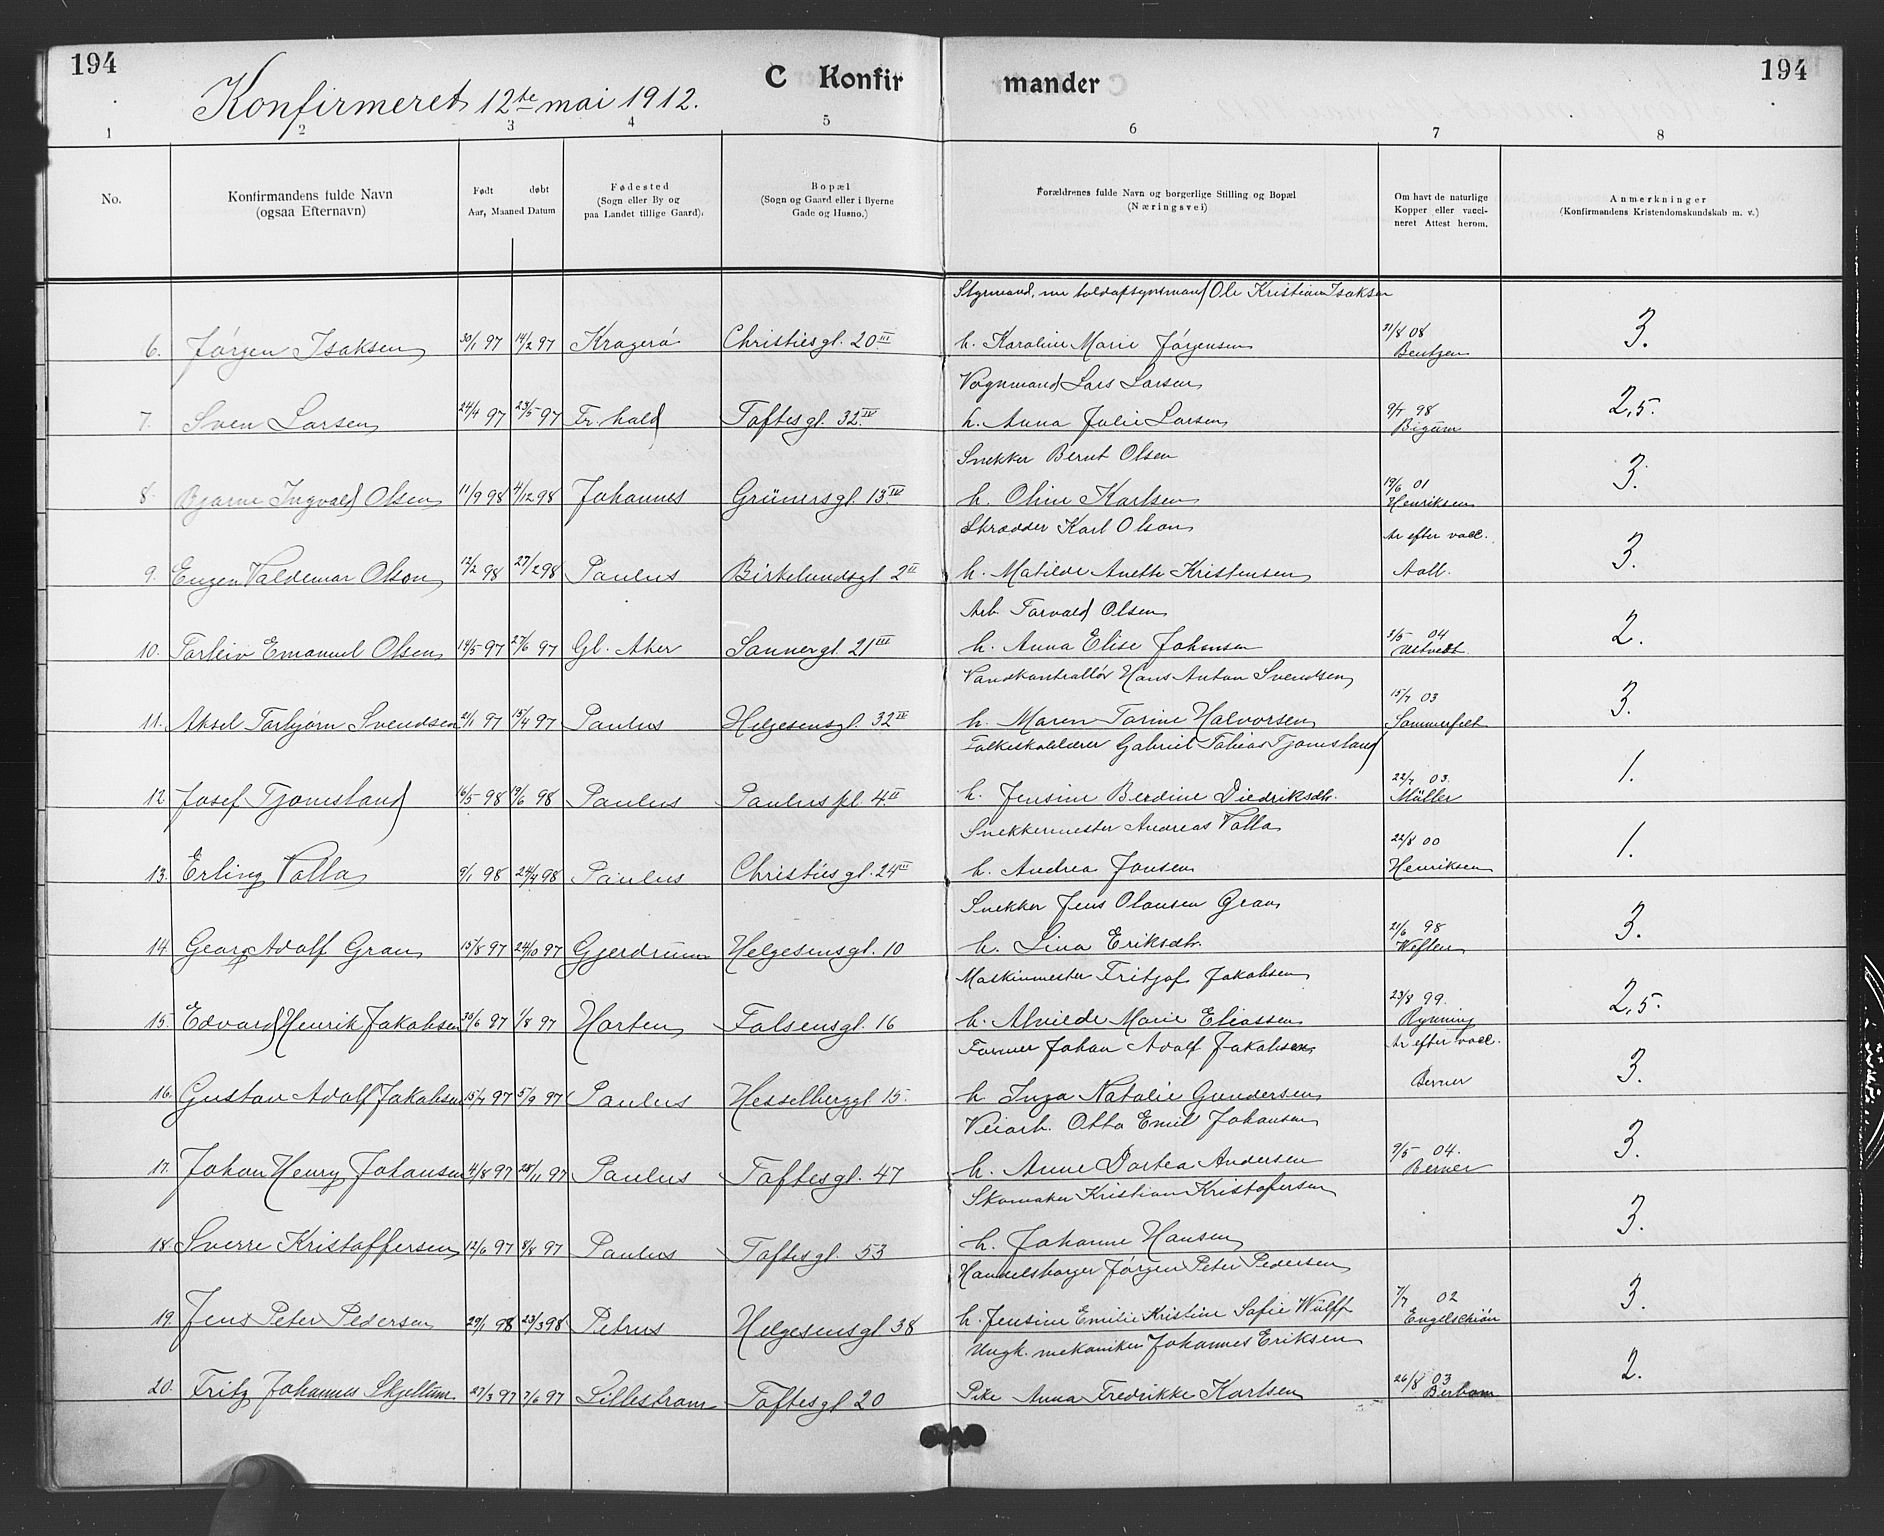 194
C Konfirmander
194
Konfirmeret 12te mai 1912.
1 2 3 4 5 6 7 8
No.
Konfirmandens fulde Navn (ogsaa Efternavn)
Født døbt Aar, Maaned Datum
Fødested (Sogn eller By og paa Landet tillige Gaard).
Bopæl (Sogn og Gaard eller i Byerne Gade og Husno.)
Forældrenes fulde Navn og borgerlige Stilling og Bopæl (Næringsvei)
Om havt de naturlige Kopper eller vaccineret Attest herom.
Anmerkninger (Konfirmandens Kristendomskundskab m. v.)
Styrmand, nu toldopsynsmand Ole Kristian Isaksen
6. Jørgen Isaksen 30/1 97 14/2 97 Kragerø Christiesgt. 20 III h. Karoline Marie Jørgensen 31/8 08 Bentzen 3.
Vognmand Lars Larsen
7. Sven Larsen 24/4 97 23/5 97 Fr.hald Toftesgt. 32 IV h. Anna Julie Larsen 9/7 98 Bigum 2,5.
Snekker Bernt Olsen
8. Bjarne Ingvald Olsen 11/9 98 4/12 98 Johannes Grünersgt. 13 IV h. Oline Karlsen 19/6 01 Henriksen 3.
Skrædder Karl Olson Ar efter vacc.
9. Eugen Valdemar Olson 12/2 98 27/2 98 Paulus Birkelundsgt 2 II h. Matilde Anette Kristensen Aall. 3.
Arb. Torvald Olsen
10. Torleiv Emanuel Olsen 14/5 97 27/6 97 Gl. Aker Sannergt. 21 III h. Anna Elise Johnsen 3/5 04 Ustvedt 2.
Vandkontrollør Hans Anton Svendsen
11. Aksel Torbjørn Svendsen 21/1 97 15/4 97 Paulus Helgesensgt. 32 IV h. Maren Torine Halvorsen 15/7 03 Sommerfelt 3.
Folkeskolelærer Gabriel Tobias Tjomsland
12 Josef Tjomsland 16/5 98 19/6 98 Paulus Pauluspl. 4 II h. Jensine Berdine Diedriksdtr. 22/7 03. Müller 1.
Snekkermester Andreas Valla
13. Erling Valla 9/1 98 24/4 98 Paulus Christiesgt. 24 III h. Andrea Jonsen 22/8 00 Henriksen 1.
Snekker Jens Olausen Gran
14. Georg Adolf Gran 15/8 97 24/10 97 Gjerdrum Helgesensgt. 10 h. Lina Eriksdtr. 21/6 98 3.
Maskinmester Fritjof Jakobsen
15. Edvard Henrik Jakobsen 30/6 97 1/8 97 Horten Falsensgt. 16 h. Alvilde Marie Eliassen 23/8 99. Rynning 2,5.
Former Johan Adolf Jakobsen Ar efter vacc.
16. Gustav Adolf Jakobsen 15/7 97 5/9 97 Paulus Hesselberggt 15. h Inga Natalie Gundersen Berner 3.
Veiarb. Otto Emil Johansen
17. Johan Henry Johansen 4/8 97 28/11 97 Paulus Toftesgt. 47 h. Anne Dortea Andersen 9/5 04. Berner 3.
Skomaker Kristian Kristofersen
18. Sverre Kristoffersen 12/6 97 8/8 97 Paulus Toftesgt. 53 h. Johanne Hansen 3.
Handelsborger Jørgen Peter Pedersen
19. Jens Peter Pedersen 29/1 98 23/3 98 Petrus Helgesensgt 38 h. Jensine Emilie Kristine Sofie Wülff 7/7 02 Engelschiøn 3.
Ungk. mekaniker Johannes Eriksen
20. Fritz Johannes Skjellum 27/3 97 7/6 97 Lillestrøm Toftesgt 20 Pike Anna Fredrikke Karlsen 26/8 03 2.